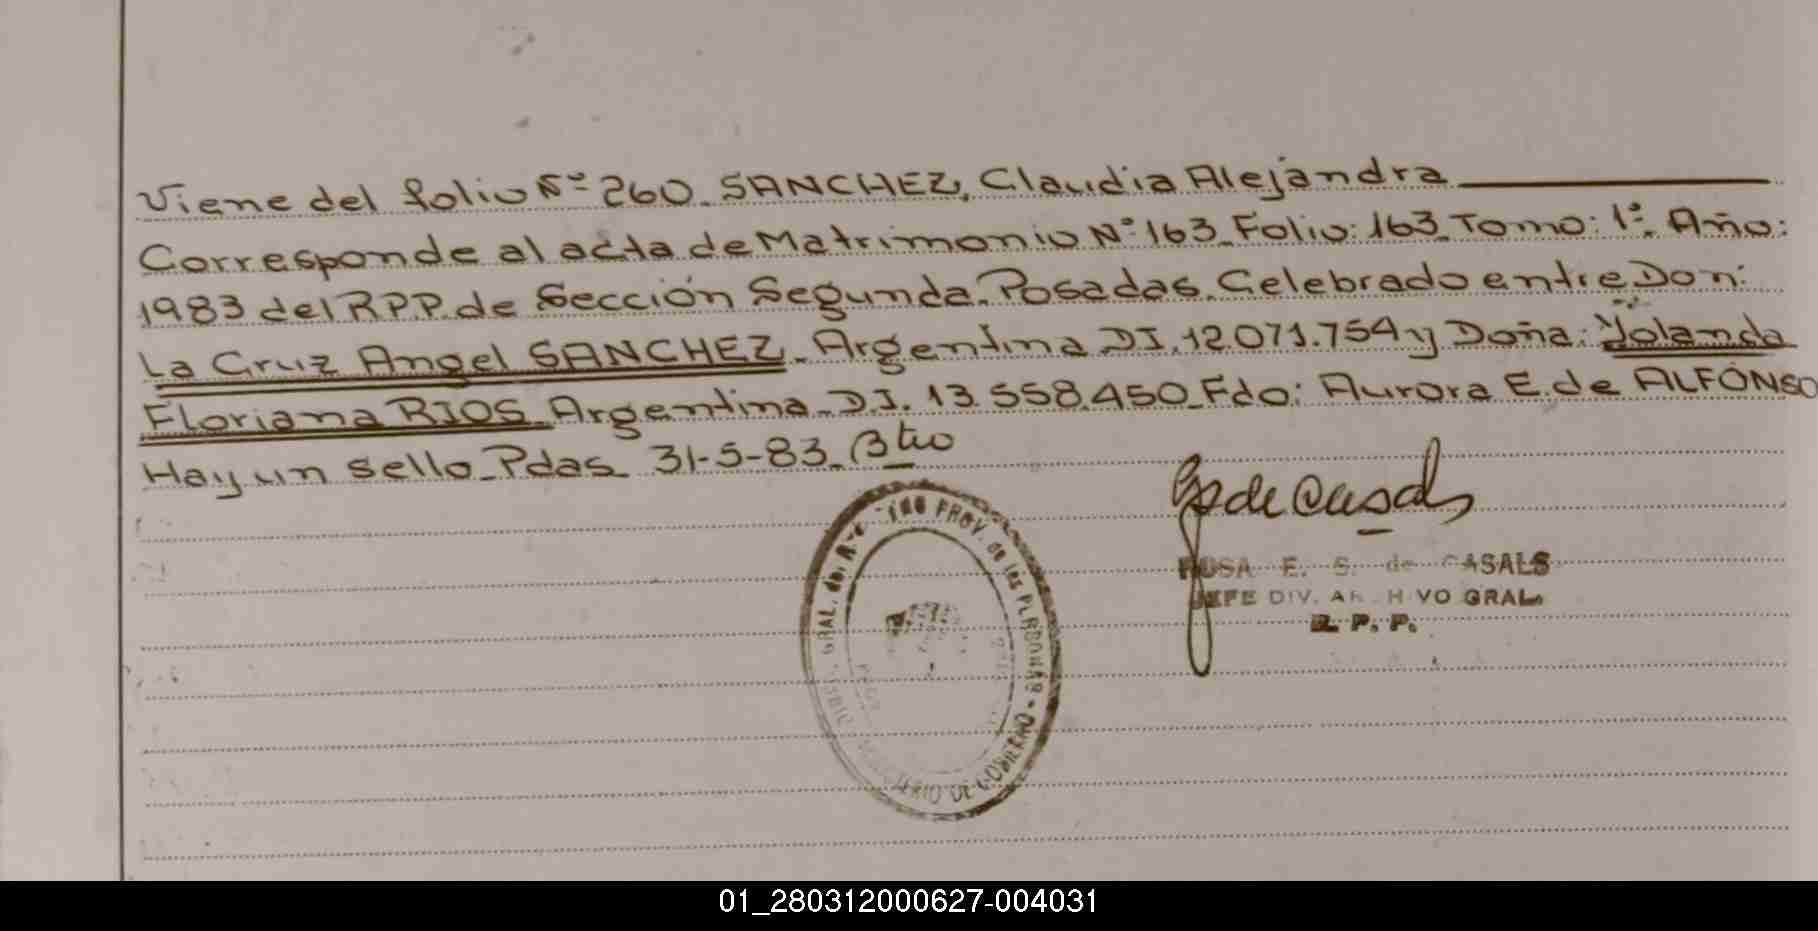 Viene del folio Nº 260. SANCHEZ, Claudia Alejandra
Corresponde al acta de Matrimonio Nº 163. Folio: 163. Tomo: 1º. Año:
1983 del R.P.P. de Sección Segunda. Posadas. Celebrado entre Don:
La Cruz Angel SANCHEZ. Argentina DI. 12.071.754 y Doña: Yolanda
Floriana RIOS. Argentina. D.I. 13.558.450. Fdo: Aurora E. de ALFÓNSO
Hay un sello. Pdas. 31-5-83.
GRAL. del PROV. de las PERSONAS - GOBIERNO
de Casals
ROSA E. S. de CASALS
JEFE DIV. ARCHIVO GRAL.
R. P. P.
01_280312000627-004031